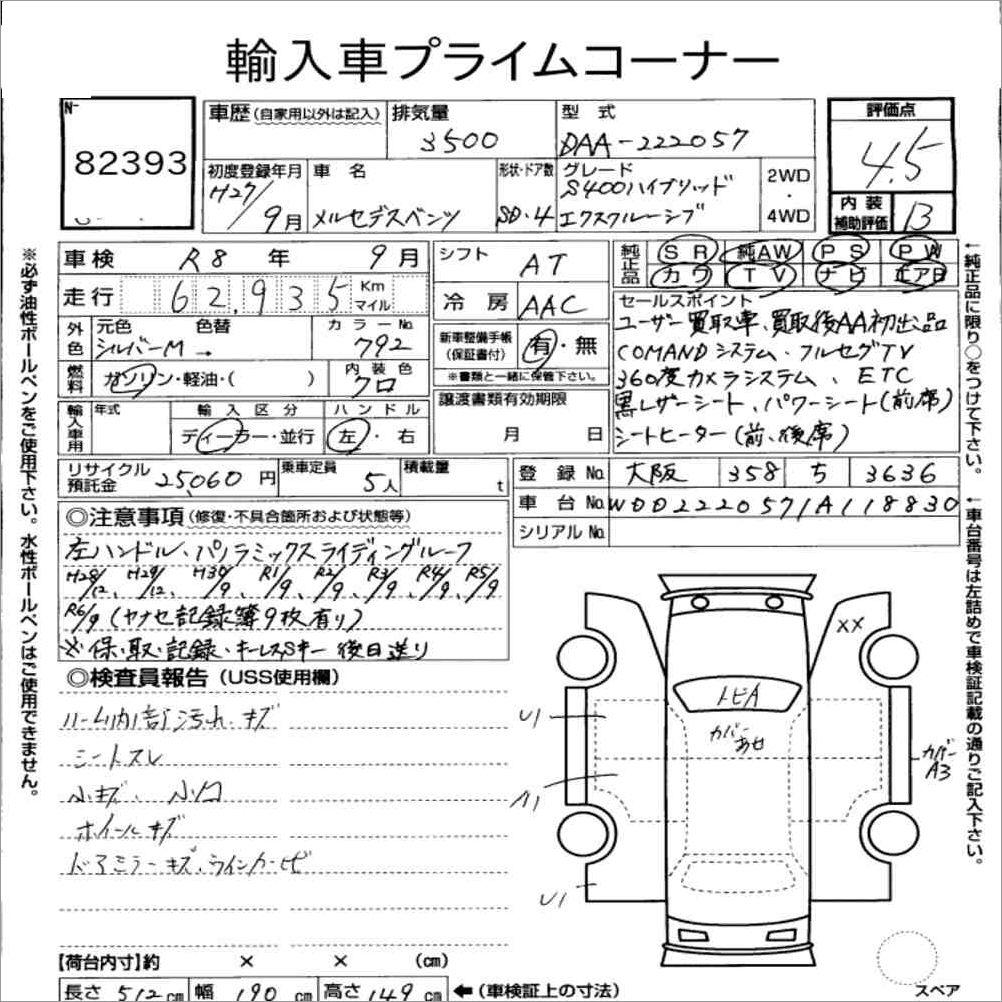 輸入車プライムコーナー
82393
車歴 (自家用以外は記入)
排気量
3500
型式
DAA-222057
評価点
4.5
初度登録年月
H27/9月
車名
メルセデスベンツ
形状・ドア数
SD・4
グレード
S400ハイブリッド
エクスクルーシブ
2WD
・
4WD
内装
補助評価
B
車検 R8年 9月
シフト AT
純正品
SR 純AW PS PW
カワ TV ナビ エアB
走行 62,935 Km マイル
冷房 AAC
セールスポイント
ユーザー買取車、買取後AA初出品
COMANDシステム・フルセグTV
360度カメラシステム、ETC
黒レザーシート、パワーシート(前席)
シートヒーター(前、後席)
外色
元色 色替 カラーNo.
シルバーM → 792
新車整備手帳
(保証書付)
有・無
※書類と一緒に保管下さい。
燃料
ガソリン・軽油・( )
内装色
クロ
譲渡書類有効期限
月 日
輸入車用
年式
輸入区分
ディーラー・並行
ハンドル
左・右
リサイクル
預託金
25,060円
乗車定員
5人
積載量
t
登録No. 大阪 358 ち 3636
車台No. WDD2220571A118830
シリアルNo.
◎注意事項 (修復・不具合箇所および状態等)
左ハンドル、パノラミックスライディングルーフ
H28/12、H29/12、H30/9、R1/9、R2/9、R3/9、R4/9、R5/9
R6/9 (ヤナセ記録簿9枚有り)
※保・取・記録・キーレスSキー 後日送り
◎検査員報告 (USS使用欄)
ルーム内部汚れ・キズ
シートスレ
小キズ、小凹
ホイールキズ
ドアミラーキズ、ウインカーヒビ
XX
トビA
カバーあせ
U1
A1
U1
カバーA3
スペア
【荷台内寸】約 × × (cm)
長さ 512cm 幅 190cm 高さ 149cm ←(車検証上の寸法)
※必ず油性ボールペンをご使用下さい。水性ボールペンはご使用できません。
←純正品に限り○をつけて下さい。
←車台番号は左詰めで車検証記載の通りご記入下さい。